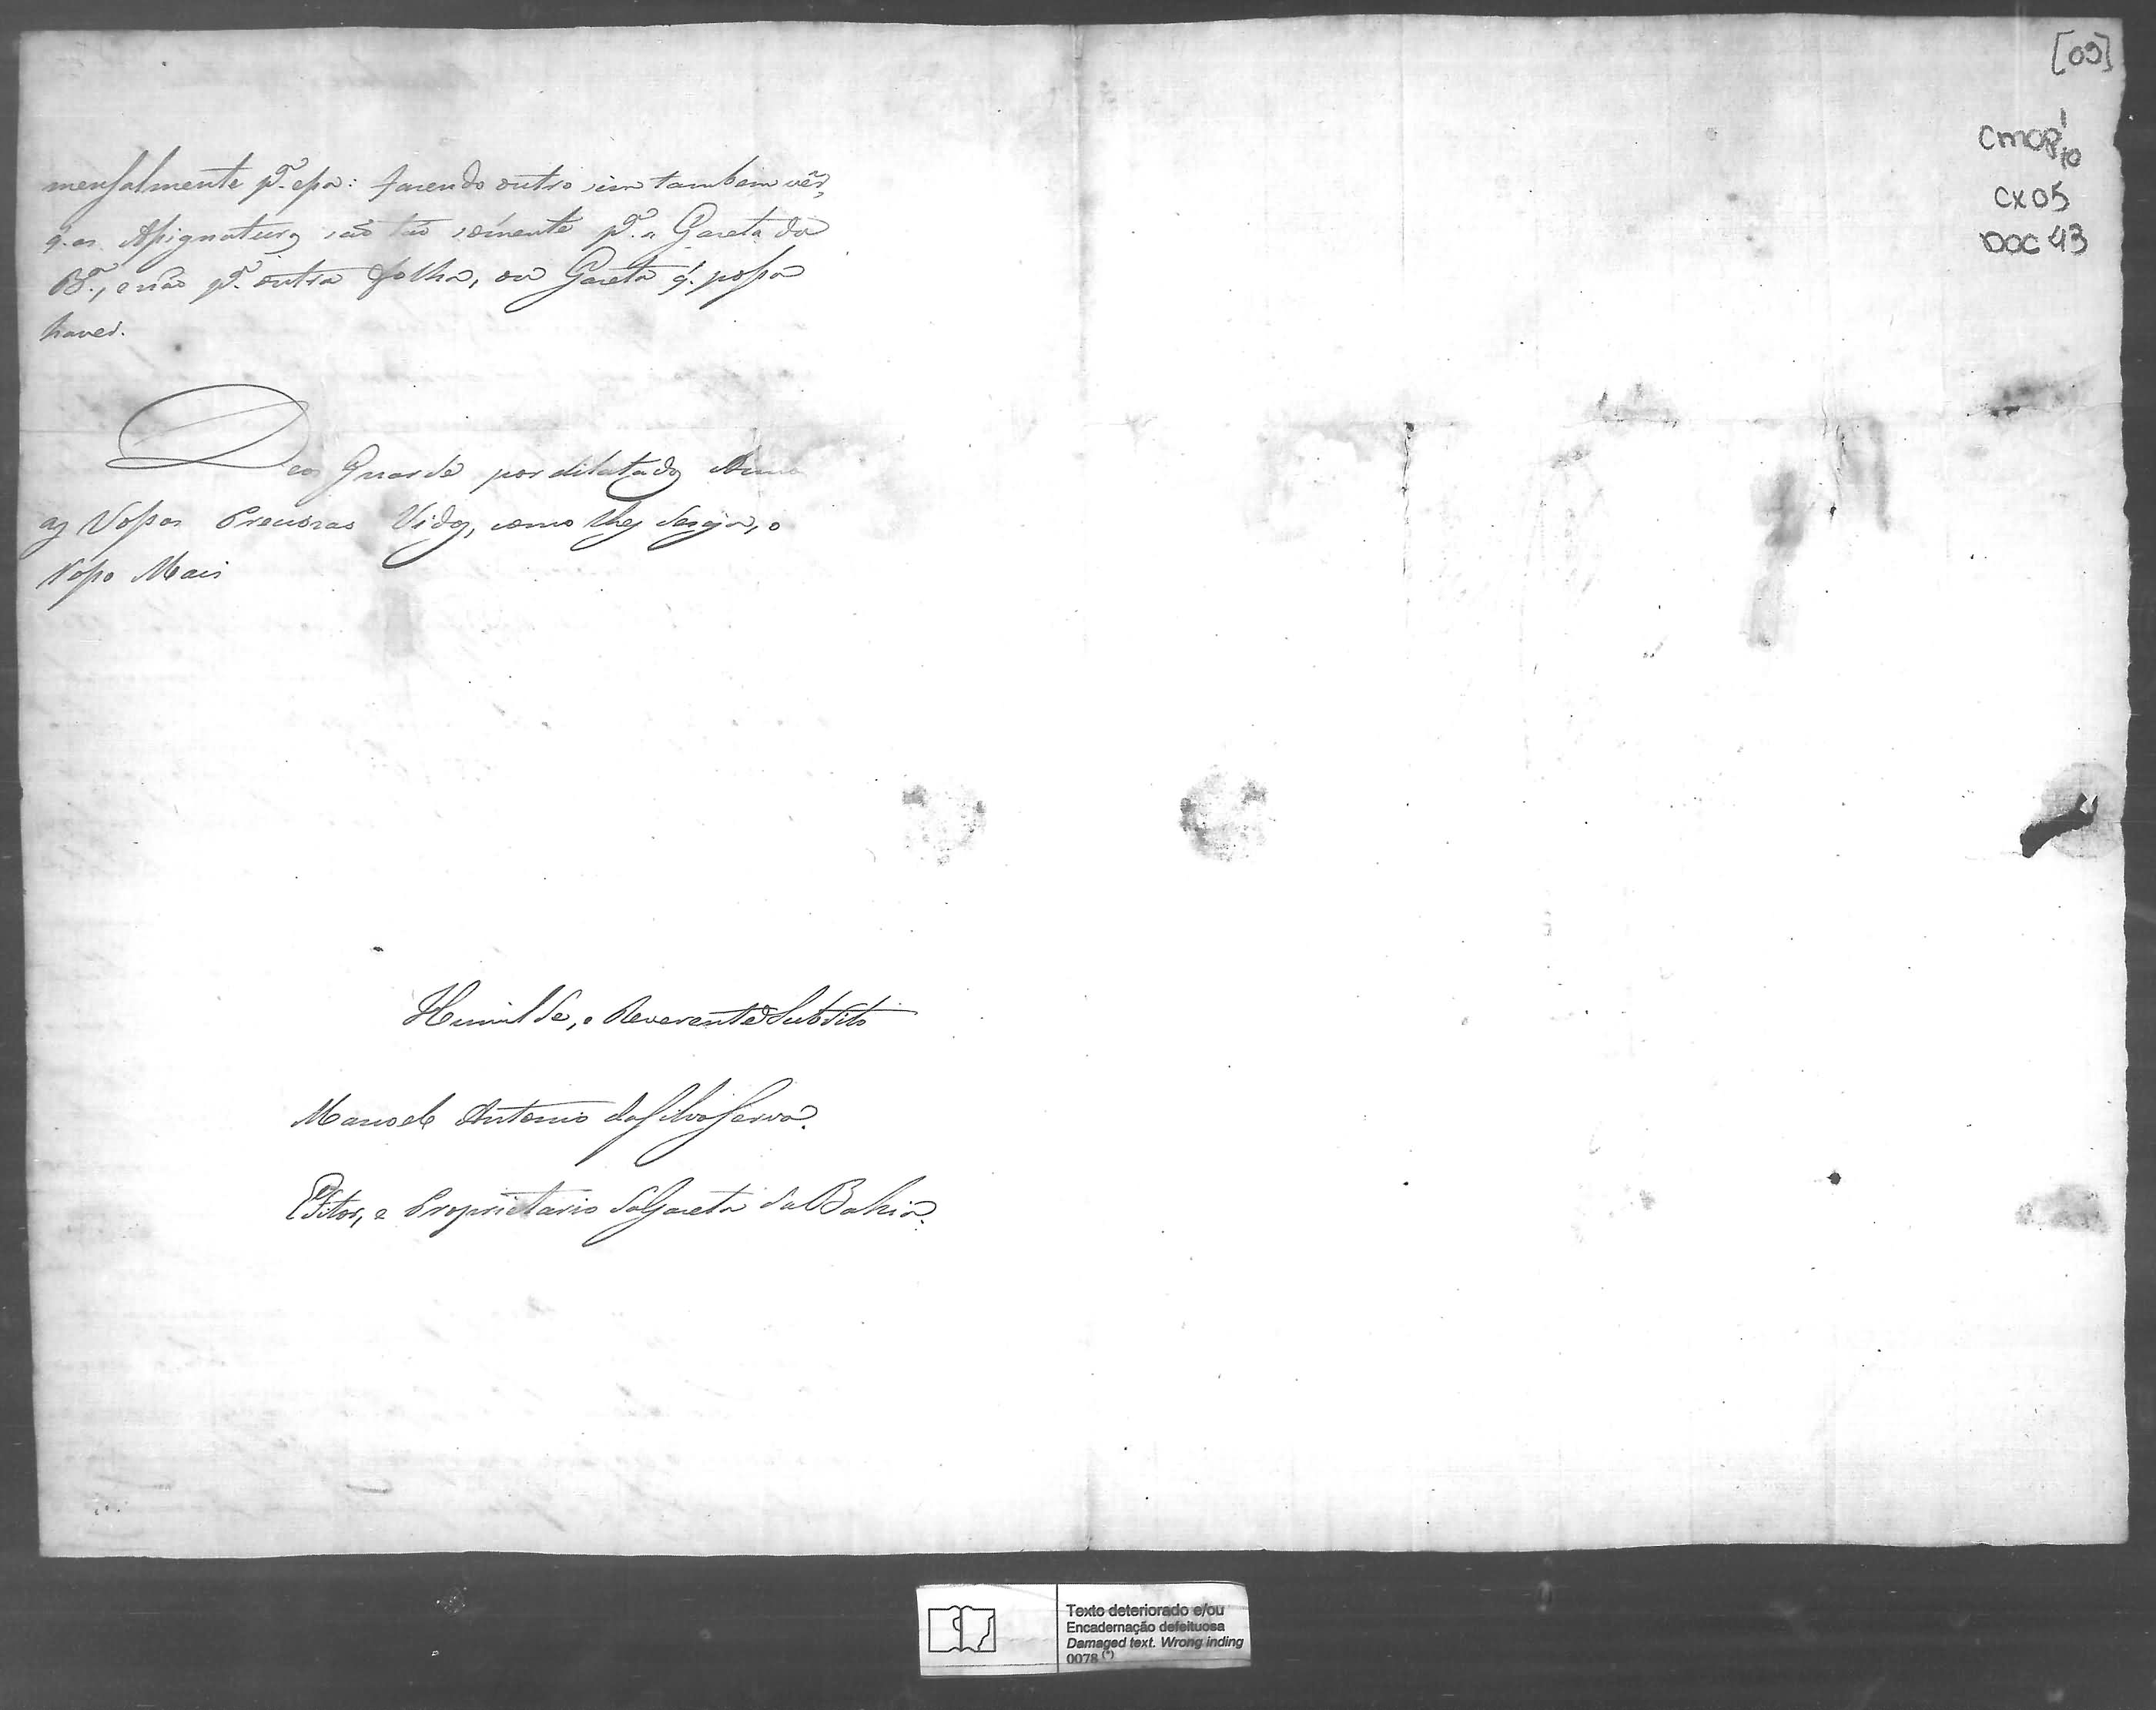 mensalmente p.ª essa: fazendo outro sim tambem vêr,
q. as Assignaturas são tão sómente p.ª a Gazeta da
B.ª, e não p.ª outra folha, ou Gazeta q. possa
haver.
Deos Guarde por dilatados Annos
as Vossas Preciozas Vidas, como lhes deseja, o
Vosso Mais
Humilde, e Reverente Subdito
Manoel Antonio da Silva Serva.
Editor, e Proprietario da Gazeta da Bahia.
[09]
CMOP 1/10
CX05
DOC 43
Texto deteriorado e/ou
Encadernação defeituosa
Damaged text. Wrong inding
0078 (*)